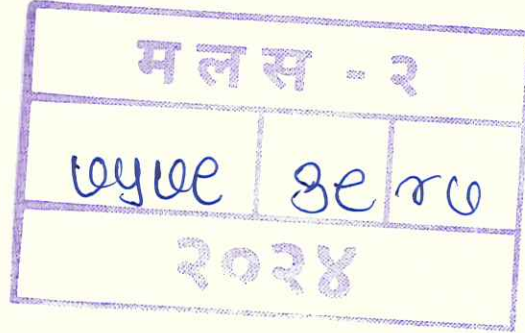 मलस - २
७५७९ ३९ ४७
२०२४